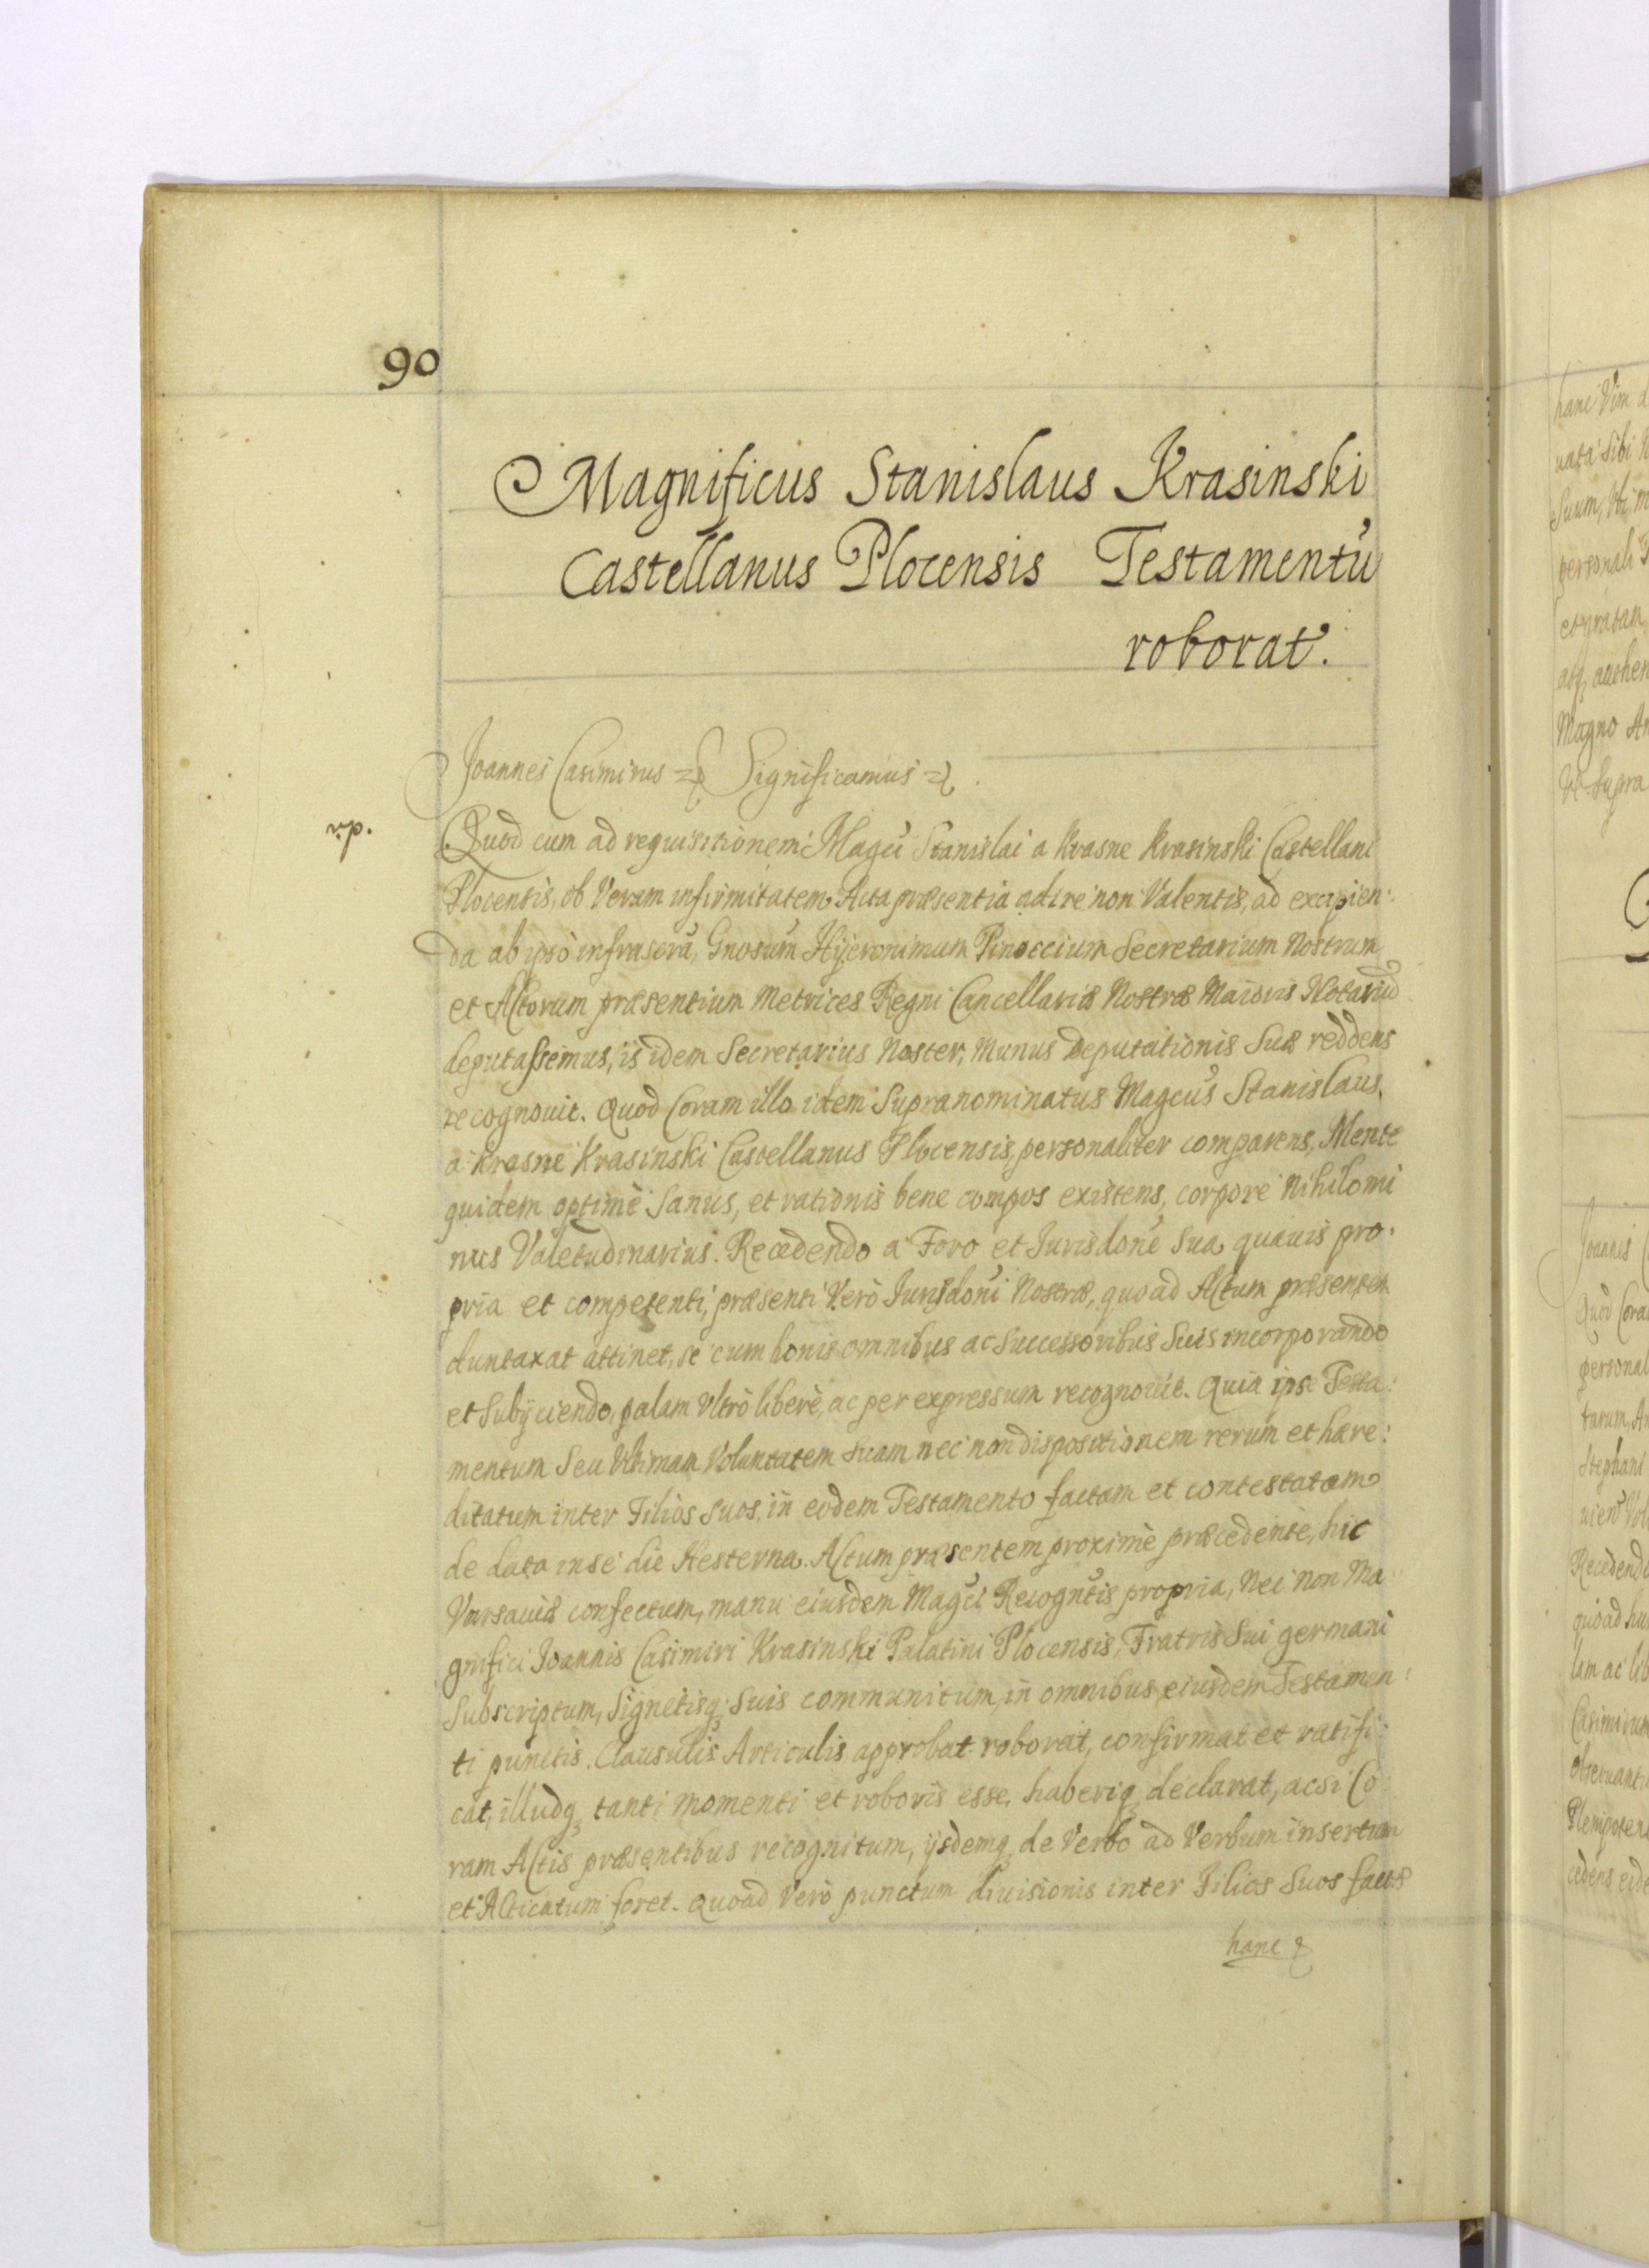 90
Magnificus Stanislaus Krasinski
Castellanus Plocensis Testamentū
roborat.
Joannes Casimirus Significamus
v.p.
Quod cum ad requisitionem Magci Stanislai a Krasne Krasinski Castellani
Plocensis, ob Veram infirmitatem Acta præsentia adire non Valentis, ad excipien:
da ab ipso infrascra, Gnosum Hyeronimum Pinoccium Secretarium Nostrum
et Actorum præsentium Metrices Regni Cancellariæ Nostræ Maioris Notariū
deputassemus, is idem Secretarius Noster, Munus Deputationis Suæ reddens
recognouit. Quod Coram illo idem Supranominatus Magcus Stanislaus
a Krasne Krasinski Castellanus Plocensis, personaliter comparens, Mente
quidem optimè Sanus, et rationis bene compos existens, corpore Nihilomi
nus Valetudinarius. Recedendo a Foro et Jurisdone Sua quauis pro.
pria et competenti, præsenti Verò Jurisdoni Nostræ, quoad Actum præsentem
duntaxat attinet, se cum bonis omnibus ac Successoribus Suis incorporando
et Subijciendo, palam Vltrò liberè, ac per expressum recognouit. Quia ipse Testa:
mentum Seu Vltimam Voluntatem Suam nec non dispositionem rerum et hære:
ditatum inter Filios Suos, in eodem Testamento factam et contestatam
de data in se die Hesterna Actum præsentem proximè præcedente, hic
Varsauiæ confectum, manu eiusdem Magci Recogntis propria, Nec Non Ma
gnifici Joannis Casimiri Krasinski Palatini Plocensis, Fratris Sui germani
Subscriptum, Signetisq; Suis communitum, in omnibus eiusdem Testamen:
ti punctis. Clausulis Articulis approbat roborat, confirmat et ratifi:
cat, illudq; tanti momenti et roboris esse, haberiq; declarat, acsi Co
ram Actis præsentibus recognitum, ijsdemq; de Verbo ad Verbum insertum
et Acticatum foret. Quoad Verò punctum diuisionis inter Filios Suos factæ
hanc